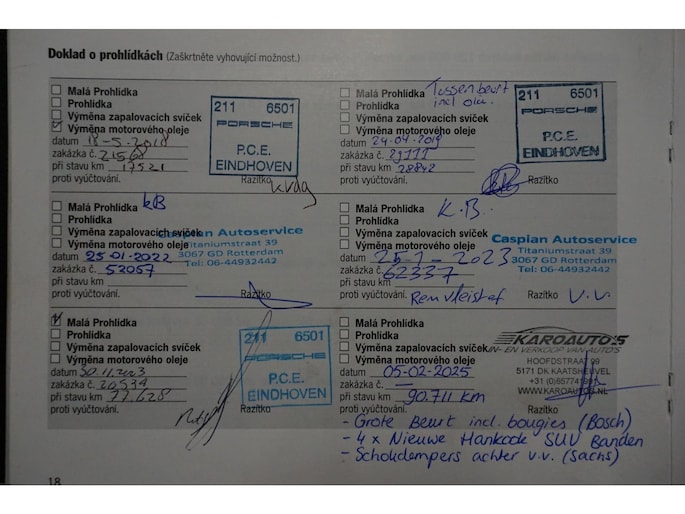 Doklad o prohlídkách (Zaškrtněte vyhovující možnost.)
Malá Prohlídka
Prohlídka
Výměna zapalovacích svíček
Výměna motorového oleje
datum 18-5-2018
zakázka č. 21568
při stavu km 17521
proti vyúčtování. Razítko
211 6501
PORSCHE
P.C.E.
EINDHOVEN
Malá Prohlídka Tussenbeurt
Prohlídka incl olie.
Výměna zapalovacích svíček
Výměna motorového oleje
datum 24-04-2019
zakázka č. 29111
při stavu km 28842
proti vyúčtování. Razítko
211 6501
PORSCHE
P.C.E.
EINDHOVEN
Malá Prohlídka KB
Prohlídka
Výměna zapalovacích svíček
Výměna motorového oleje
datum 25-01-2022
zakázka č. 52057
při stavu km
proti vyúčtování. Razítko
Caspian Autoservice
Titaniumstraat 39
3067 GD Rotterdam
Tel: 06-44932442
Malá Prohlídka K.B.
Prohlídka
Výměna zapalovacích svíček
Výměna motorového oleje
datum 25-1-2023
zakázka č. 62337
při stavu km
proti vyúčtování. Razítko V.V.
Caspian Autoservice
Titaniumstraat 39
3067 GD Rotterdam
Tel: 06-44932442
Malá Prohlídka
Prohlídka
Výměna zapalovacích svíček
Výměna motorového oleje
datum 30.11.2023
zakázka č. 20534
při stavu km 77.628
proti vyúčtování. Razítko
211 6501
PORSCHE
P.C.E.
EINDHOVEN
Malá Prohlídka
Prohlídka
Výměna zapalovacích svíček
Výměna motorového oleje
datum 05-02-2025
zakázka č. —
při stavu km 90.711 km
proti vyúčtování. Razítko
KAROAUTO'S
IN- EN VERKOOP VAN AUTO'S
HOOFDSTRAAT
5171 DK KAATSHEUVEL
WWW.KAROAUTOS.NL
- Grote Beurt incl. bougies (Bosch)
- 4 x Nieuwe Hankook SUV Banden
- Schokdempers achter v.v. (Sachs)
18